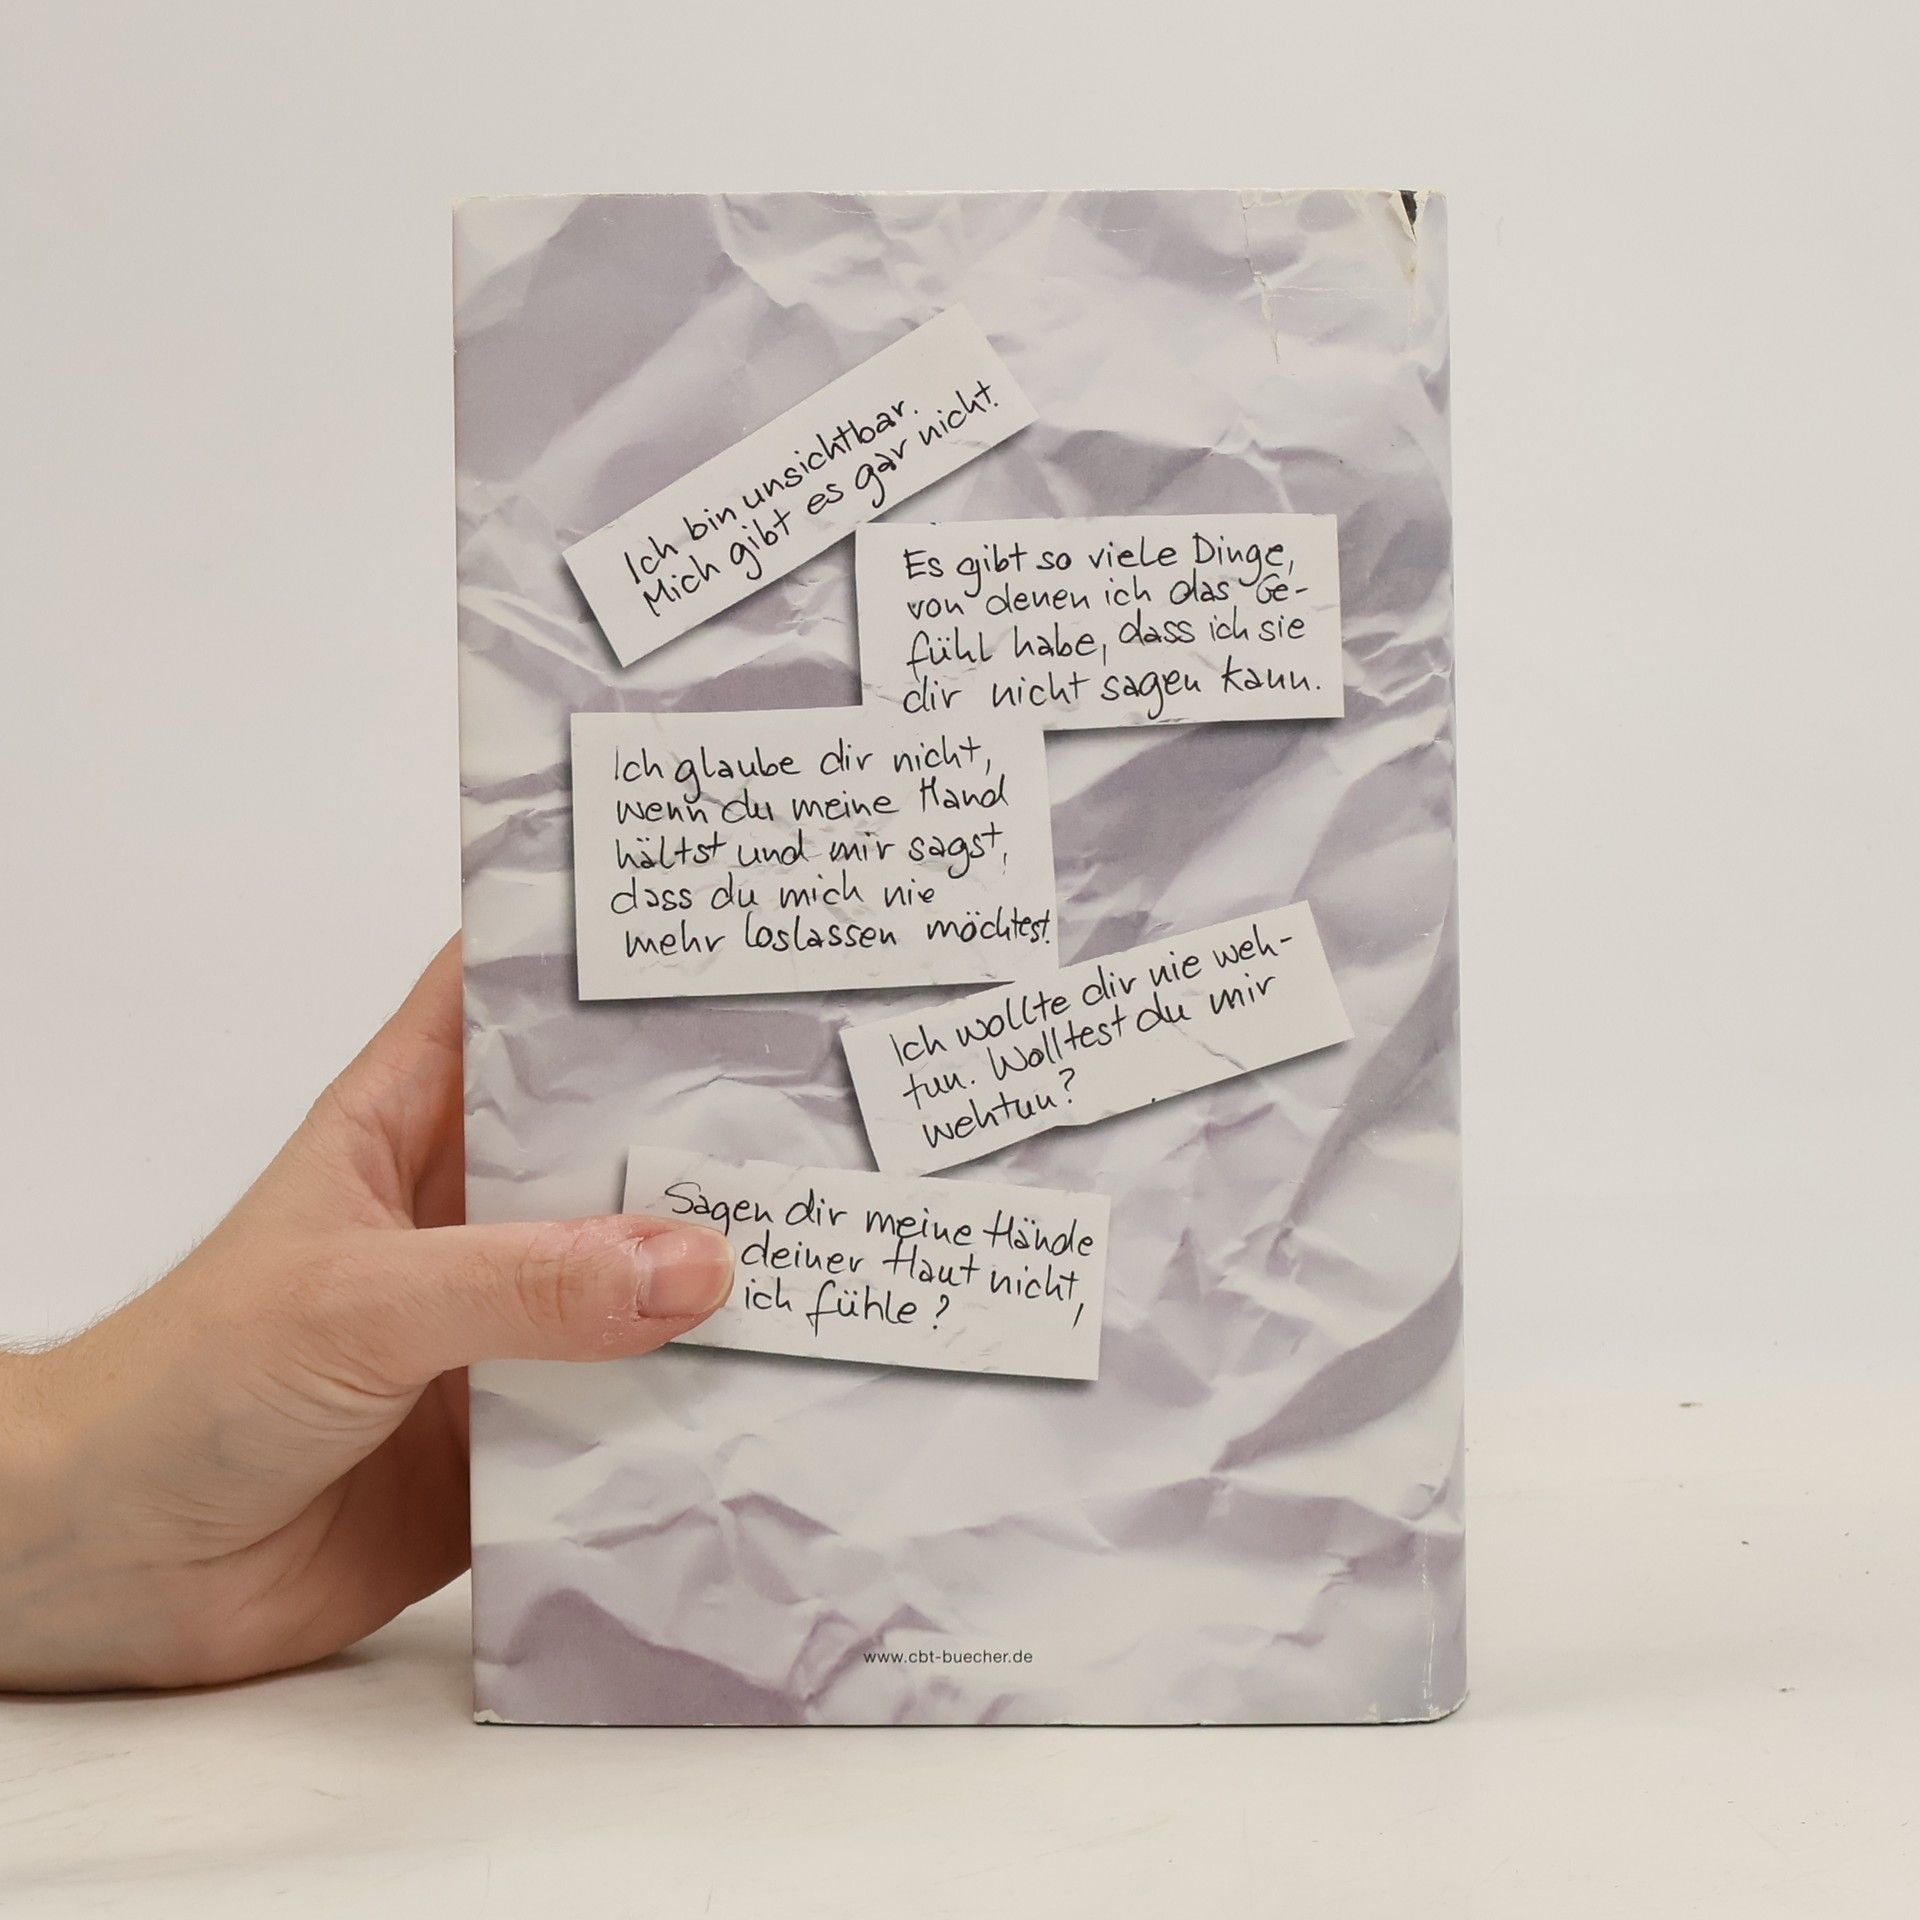 Ich bin unsichtbar.
Mich gibt es gar nicht.
Es gibt so viele Dinge,
von denen ich das Ge-
fühl habe, dass ich sie
dir nicht sagen kann.
Ich glaube dir nicht,
wenn du meine Hand
hältst und mir sagst,
dass du mich nie
mehr loslassen möchtest.
Ich wollte dir nie weh-
tun. Wolltest du mir
wehtun?
Sagen dir meine Hände
deiner Haut nicht,
ich fühle?
www.cbt-buecher.de